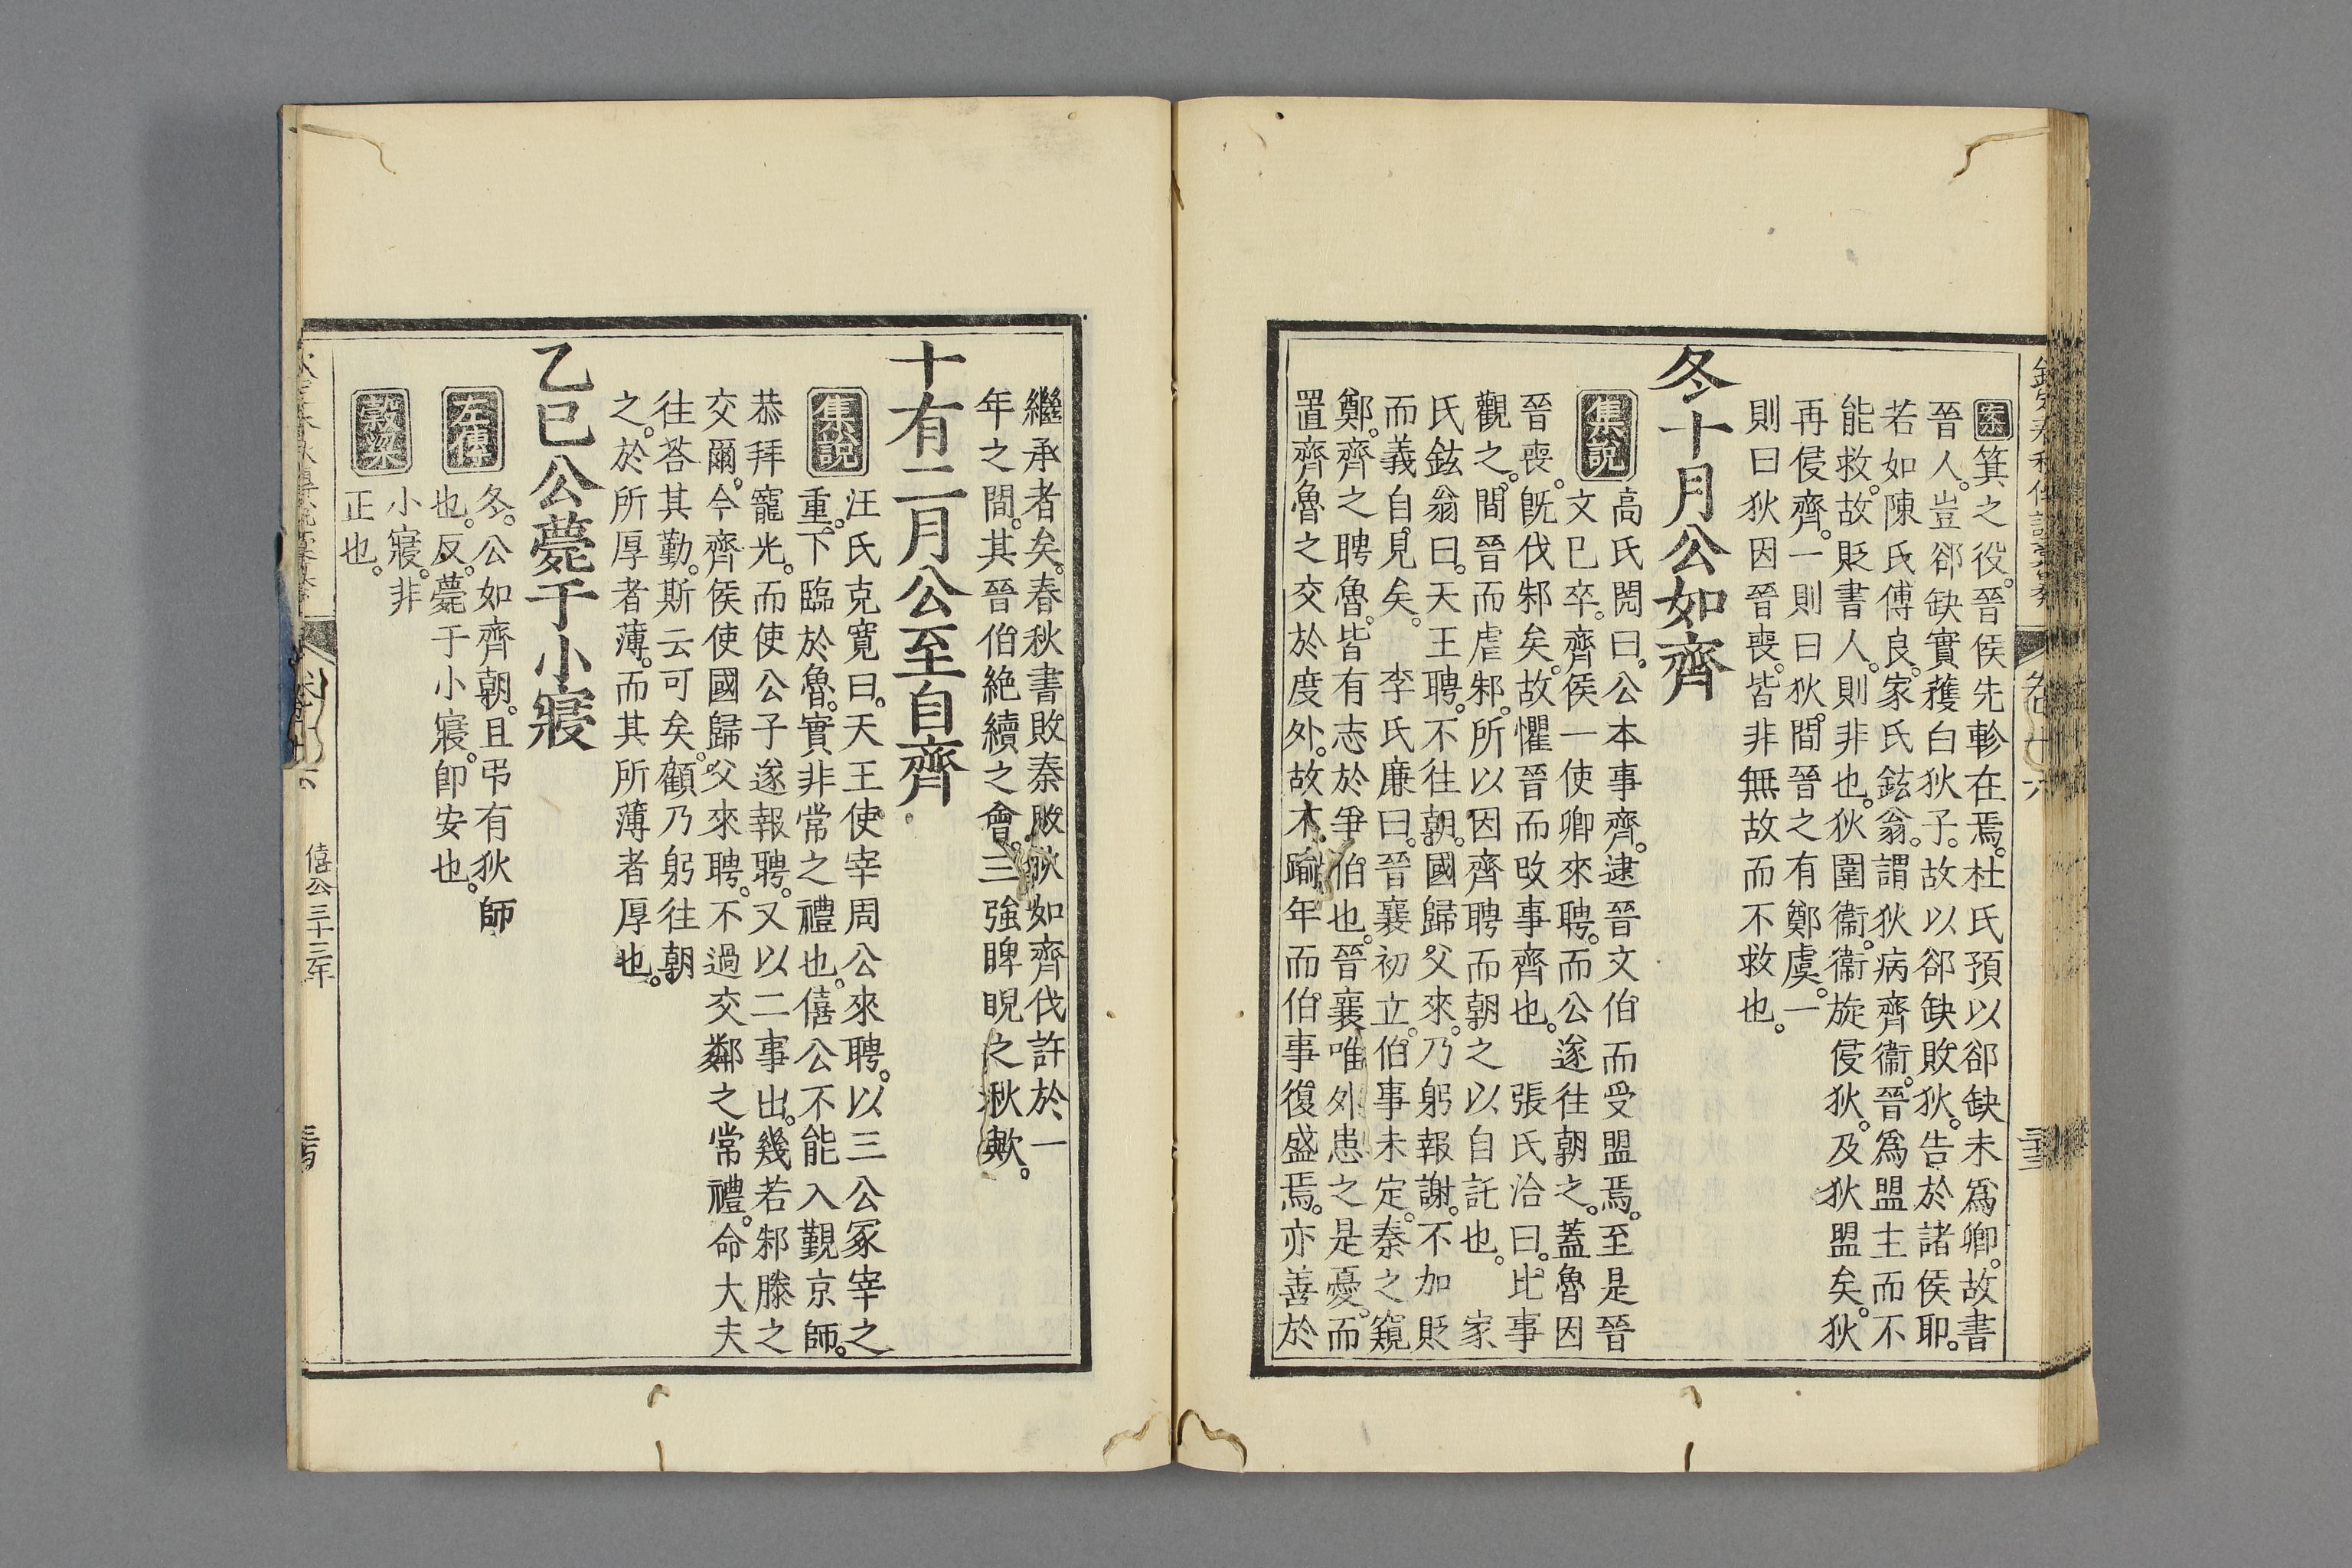 案箕之役。晉侯先軫在焉。杜氏預以郤缺未爲卿。故書
晉人。豈郤缺實蔿白狄子。故以郤缺敗狄。告於諸侯耶。
若如陳氏傅良。家氏鉉翁。謂狄病齊衞。晉爲盟主而不
能救。故貶書人。則非也。狄圍衞。衞旋侵狄。及狄盟矣。狄
再侵齊。一則曰狄。間晉之有鄭虞。一
則曰狄因晉喪。皆非無故而不救也。
冬十月公如齊
集說
高氏閌曰。公本事齊。逮晉文伯而受盟焉。至是晉
文巳卒。齊侯一使卿來聘。而公遂往朝之。蓋魯因
晉喪。旣伐邾矣。故懼晉而攺事齊也。 張氏洽曰。比事
觀之。間晉而虐邾。所以因齊聘而朝之以自託也。 家
氏鉉翁曰。天王聘。不往朝。國歸父來。乃躬報謝。不加貶
而義自見矣。 李氏廉曰。晉襄初立。伯事未定。秦之窺
鄭。齊之聘魯。皆有志於爭伯也。晉襄唯外患之是憂。而
置齊魯之交於度外。故不踰年而伯事復盛焉。亦善於
繼承者矣。春秋書敗秦敗狄如齊伐許於一
年之間。其晉伯絶續之會。三強睥睨之秋歟。
十有二月公至自齊
集說
汪氏克寬曰。天王使宰周公來聘。以三公冢宰之
重。下臨於魯。實非常之禮也。僖公不能入覲京師。
恭拜寵光。而使公子遂報聘。又以二事出。幾若邾滕之
交爾。今齊侯使國歸父來聘。不過交鄰之常禮。命大夫
往荅其勤。斯云可矣。顧乃躬往朝
之。於所厚者薄。而其所薄者厚也。
乙巳公薨于小寢
左傳
冬。公如齊朝。且弔有狄師
也。反。薨于小寢。卽安也。
穀梁
小寢。非
正也。
僖公三十三年